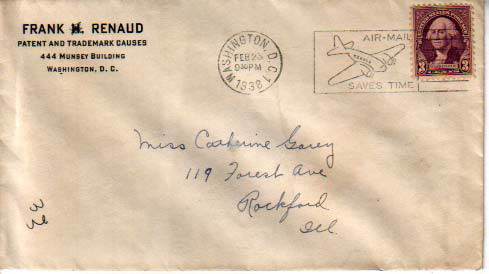 FRANK H. RENAUD
PATENT AND TRADEMARK CAUSES
444 MUNSEY BUILDING
WASHINGTON, D. C.
WASHINGTON, D.C.
FEB 23
PM
1938
AIR-MAIL
SAVES TIME
3 3
Miss Catherine Garey
119 Forest Ave
Rockford
Ill.